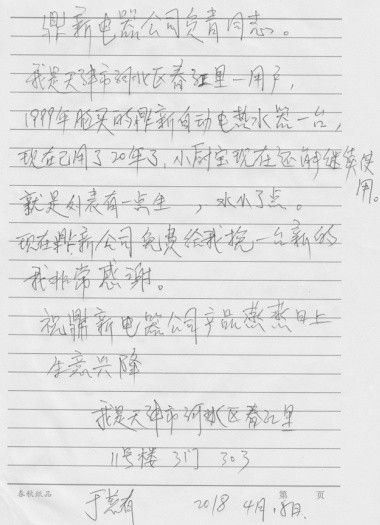 鼎新电器公司负责同志。
我是天津市河北区春江里一用户,
1999年购买的鼎新自动电热水器一台,
现在已用了20年了,小厨宝现在还能继续使用。
就是外表有一点生 ,水小了点。
现在鼎新公司免费给我换一台新的
我非常感谢。
祝鼎新电器公司产品蒸蒸日上
生意兴隆
我是天津市河北区春江里
11号楼 3门 303
春秋纸品 第 页
于志有 2018 4月.18日.